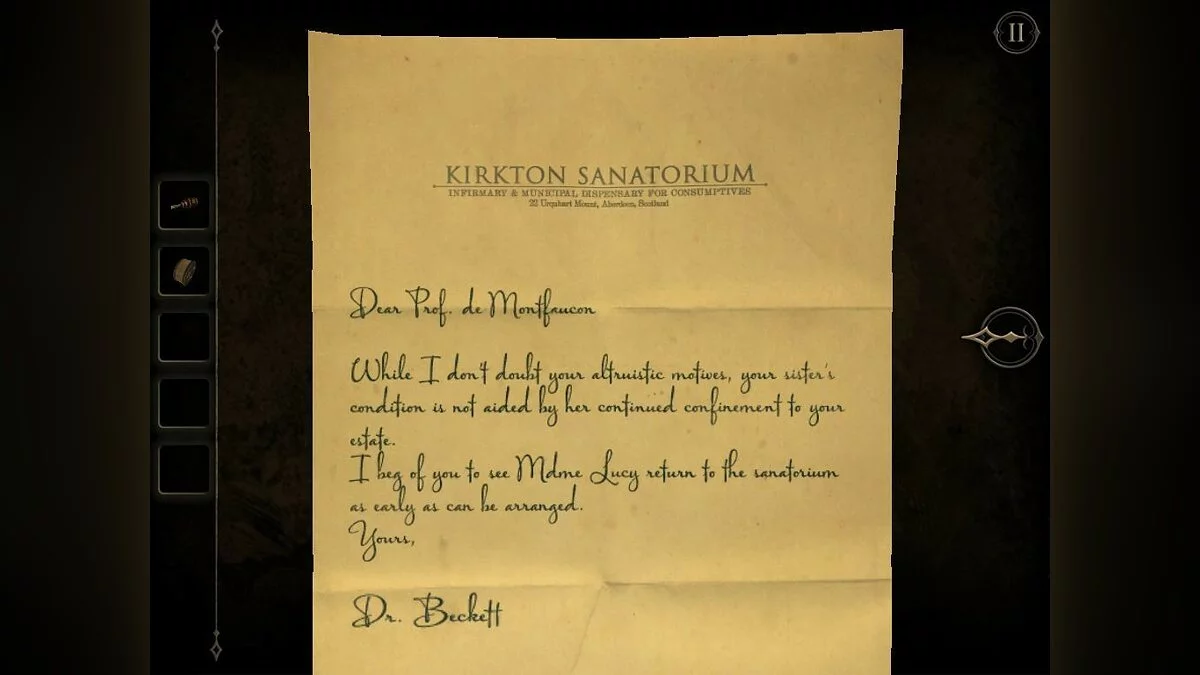 KIRKTON SANATORIUM
INFIRMARY & MUNICIPAL DISPENSARY FOR CONSUMPTIVES
22 Urquhart Mount, Aberdeen, Scotland
Dear Prof. de Montfaucon
While I don't doubt your altruistic motives, your sister's
condition is not aided by her continued confinement to your
estate.
I beg of you to see Mdme Lucy return to the sanatorium
as early as can be arranged.
Yours,
Dr. Beckett